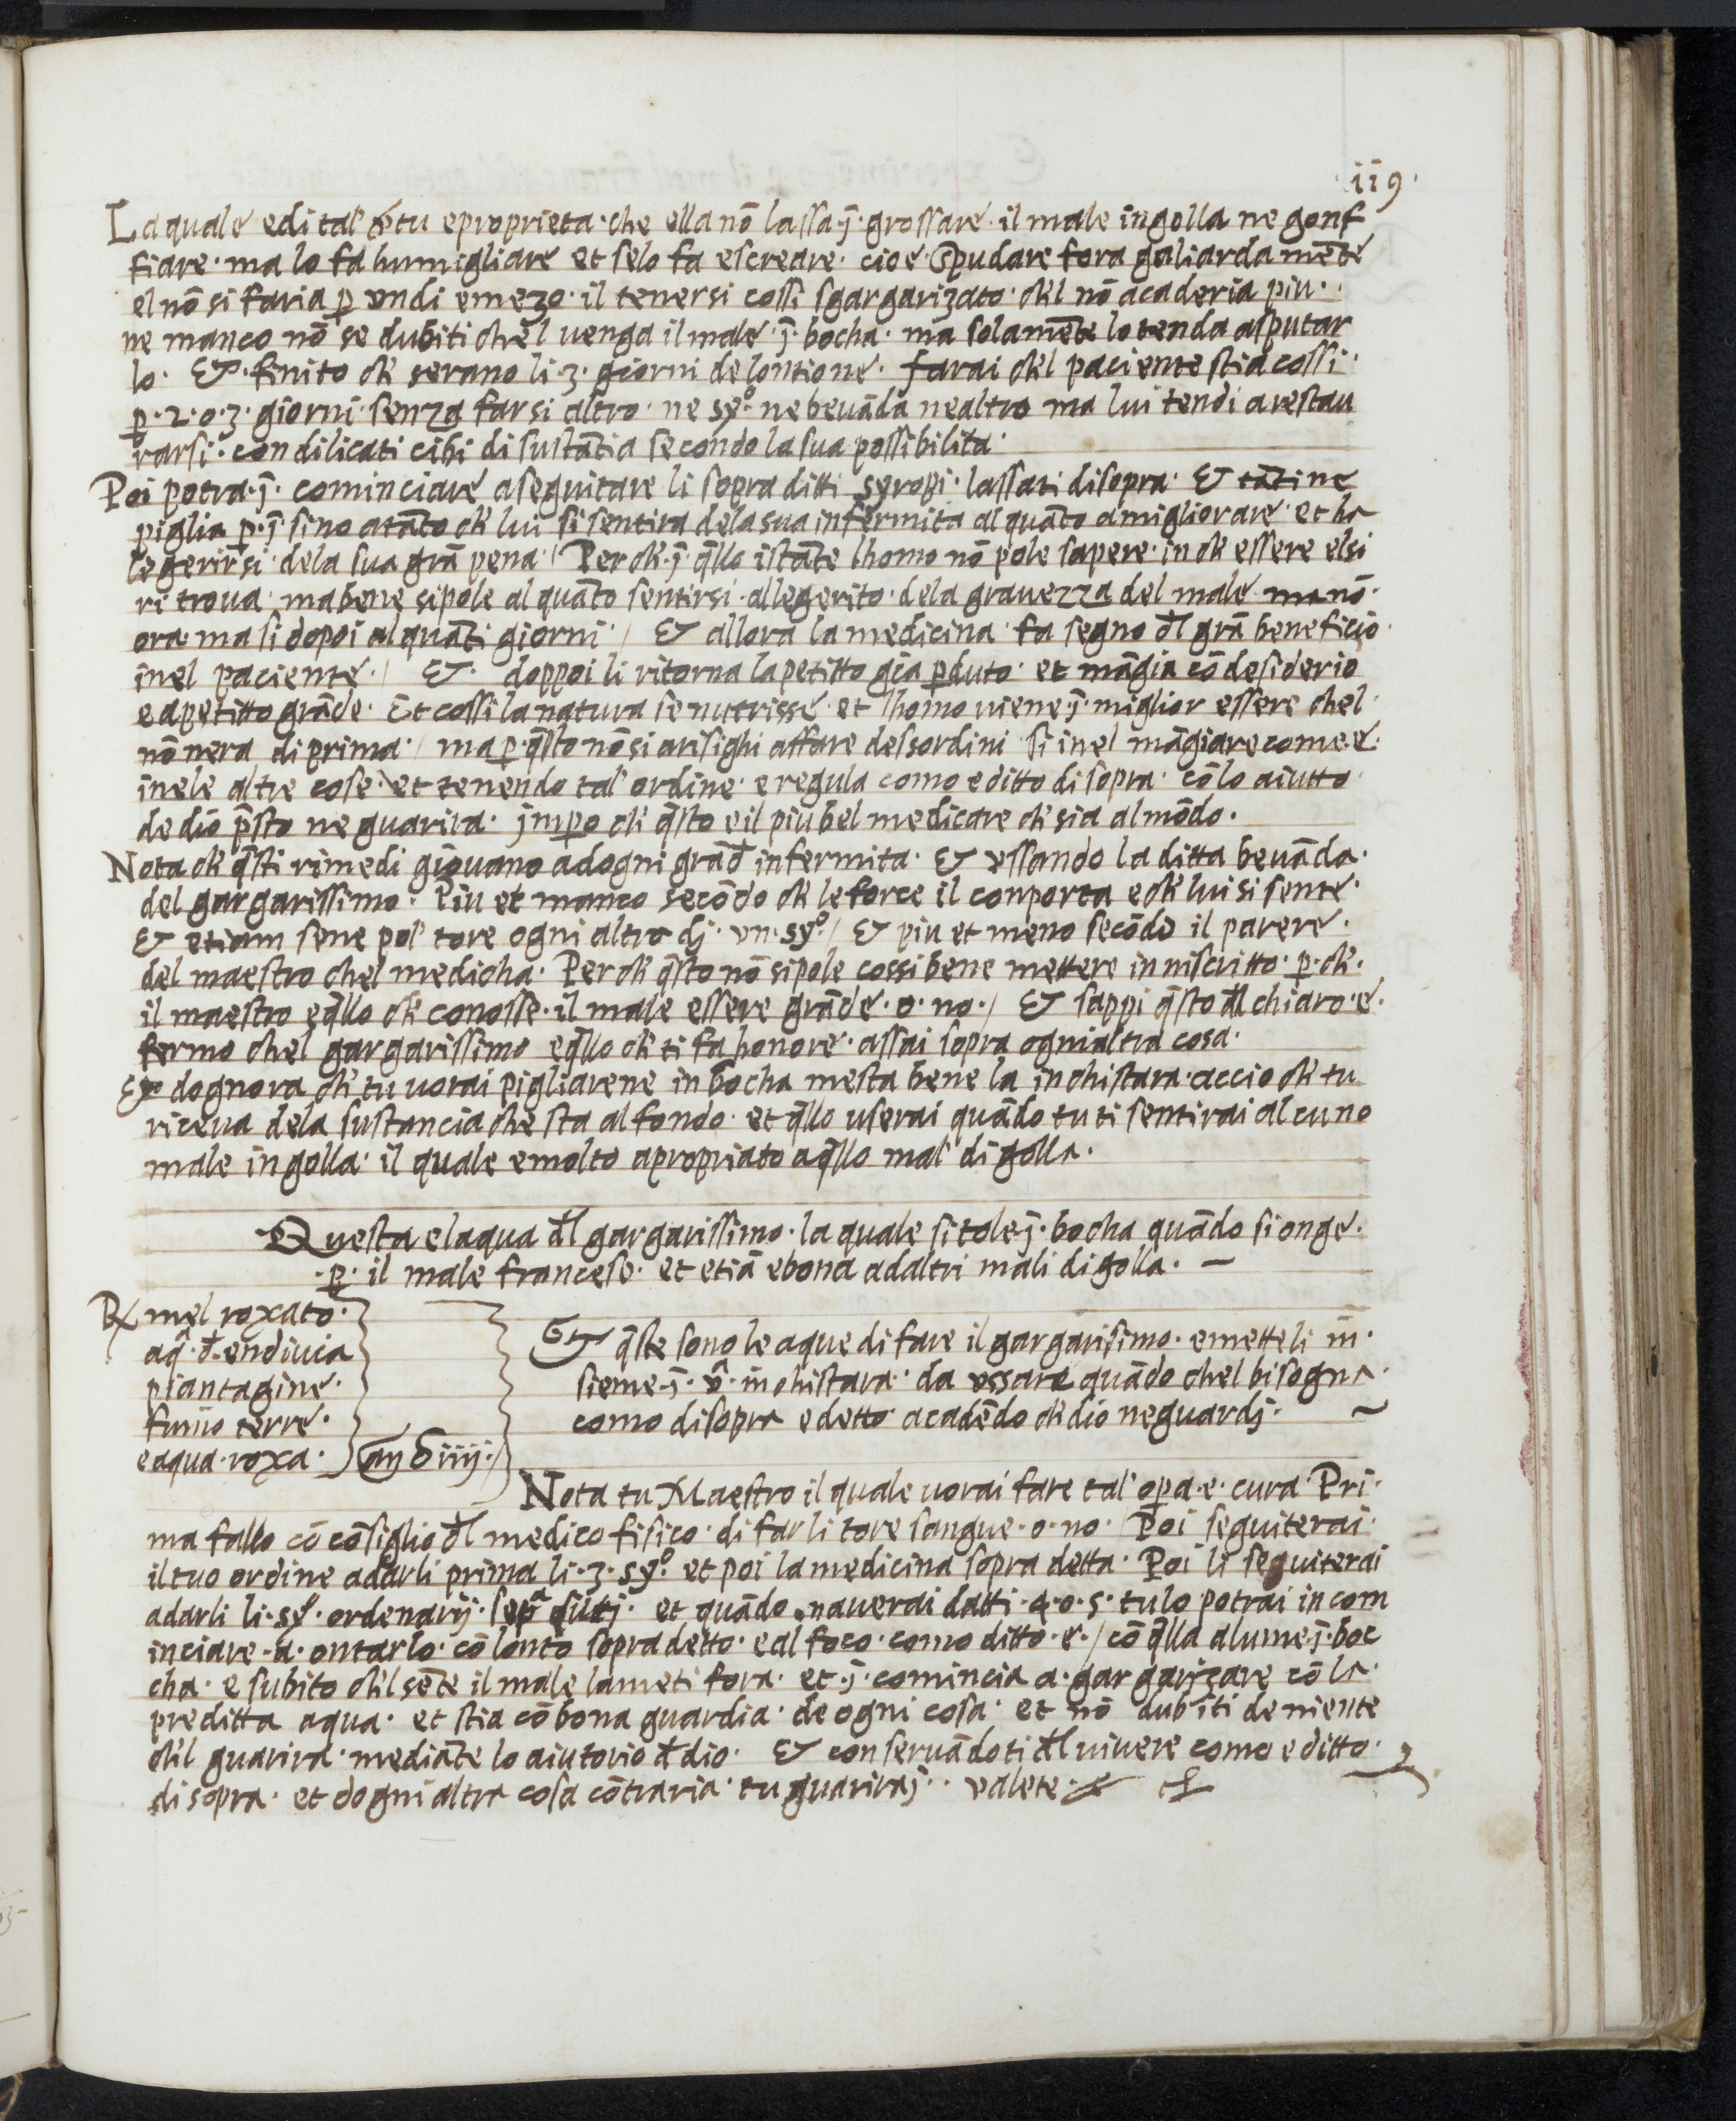 ·ii9·
La quale edi tal' v̄tu e proprieta· che ella nō lassa·j̄·grossare· il male in golla ne gonf
fiare· ma lo fa humigliare et se lo fa escreare· cioe spudare fora galiarda mēte
el nō si faria p̱ un di e mezo· il tenersi cossi sgargarizato· ch'l nō acaderia piu·
ne manco nō se dubiti chel uenga il male·j̄·bocha· ma solamēte lo tenda asputar
lo· &· finito ch' serano li·3·giorni de lontione· farai ch'l paciente stia cossi·
p̱·2·o·3·giorni· senza farsi altro· ne syº· ne beuāda ne altro ma lui tendi a restau
rarsi· con dilicati cibi di sustātia secondo la sua possibilita·
Poi potra·j̄·cominciare aseguitare li sopra ditti syropi· lassati di sopra· & tāti ne
piglia p̱·j̄ sino atāto ch' lui si sentira dela sua infermita al quāto amigliorare· et ha
legerirsi· dela sua grā pena·/ Per ch'·j̄·q̄llo istāte lhomo nō pole sapere· in ch' essere el si
ri troua· ma bene si pole al quāto sentirsi· allegerito· dela grauezza del male· ma nō·
ora· ma si dopoi al quāti giorni·/ & allora la medicina· fa segno d̄l grā beneficio·
inel paciente·/ &· doppoi li ritorna lapetitto gia p̱duto· et māgia cō desiderio
e apetitto grāde· Et cossi la natura se nutrisse· et lhomo uiene·j̄·miglior essere chel·
nō nera di prima·/ ma p̱·q̄sto nō si arisighi affare dessordini si inel māgiare come·e·
inele altre cose· et tenendo tal' ordine· e regula como e ditto di sopra· cō lo aiutto·
de dio p̄sto ne guarira· jmp̱o ch' q̄sto e il piu bel medicare ch' sia al mōdo·
Nota ch' q̄sti rimedi giouano ad ogni grād̄ infermita· & ussando la ditta beuāda·
del gargarissimo· Piu et manco secōdo ch' le force il conporta e ch' lui si sente·
& etiam sene pol' tore ogni altro dj· un·syº·/ & piu et meno secōdo il parere·
del maestro chel medicha· Per ch' q̄sto nō si pole cossi bene mettere in niscritto· p̱·ch'·
il maestro e q̄llo ch' conosse· il male essere grāde·o·no·/ & sappi q̄sto d̄l chiaro·e·
fermo chel gargarissimo e q̄llo ch' ti fa honore· assai sopra ogni altra cosa·
& dognora ch' tu uorai pigliarene in bocha mesta bene la inchistara· accio ch' tu
riceua dela sustancia che sta al fondo· et q̄llo userai quādo tu ti sentirai alcuno
male in golla· il quale e molto apropriato a q̄llo mal' di golla·
Questa e laqua d̄l gargarissimo· la quale si tole·j̄·bocha quādo si onge·
·p̱·il male francese· et etiā e bona ad altri mali di golla· —
℞ mel roxato·
aqᵃ·d̄·endiuia
piantagine·
fumo terre·
e aqua·roxa· an ʒ iiij·
Et q̄ste sono le aque di fare il gargarisimo· e metteli in·
sieme·j̄·uᵃ·inchistara· da ussare quādo chel bisogna·
como di sopra e detto· acadēdo ch' dio ne guardj· ~
Nota tu Maestro il quale uorai fare tal' op̱a·e·cura· Pri·
ma fallo cō cōsiglio d̄l medico fisico· di farli tore sangue·o·no· Poi seguiterai·
il tuo ordine adarli prima li·3·syº· et poi la medicina sopra detta· Poi li seguiterai
adarli li·sy·ordenarij· et quādo naverai datti·4·o·5·tu lo potrai in com
inciare·a·ontarlo· cō lonto sopra detto· e al foco· como ditto·e·/ cō q̄lla alume·j̄·boc
cha· e subito ch'l sēte il male lameti fora· et·j̄·comincia a·gargarizare cō la·
preditta aqua· et stia cō bona guardia· de ogni cosa· et nō dubiti de niente
ch'l guarira· mediāte lo aiutorio d̄ dio· & conseruādoti d̄l uiuere como e ditto·
di sopra· et dogni altra cosa cōtraria· tu guariraj·· valete·